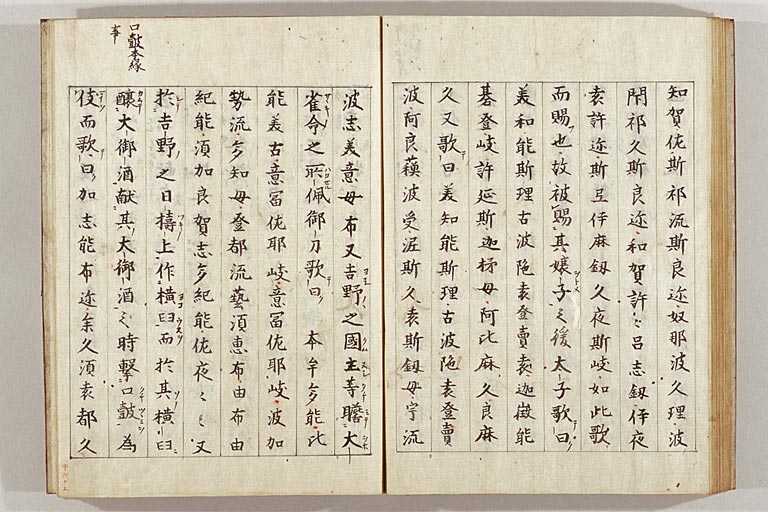 知賀佐斯祁流斯良迩奴那波久理波
閇祁久斯良迩和賀許〻呂志叙伊夜
袁許迩斯弖伊麻叙久夜斯岐如此歌
而賜也故被賜其嬢子之後太子歌曰
美和能斯理古波陁袁登賣袁迦微能
碁登岐許延斯迦杼母阿比麻久良麻
久又歌曰美知能斯理古波陁袁登賣
波阿良蘓波受泥斯久袁斯叙母宇流
波志美意母布又吉野之國主等瞻大
雀命之所佩御刀歌曰 本牟多能比
能美古意冨佐耶岐意冨佐耶岐波加
勢流多知母登都流藝湏恵布由布由
紀能湏加良賀志多紀能佐夜〻〻又
於吉野之白檮上作横臼而於其横臼
醸大御酒献其大御酒之時撃口皷為
伎而歌曰加志能布迩余久湏袁都久
口皷本縁
事